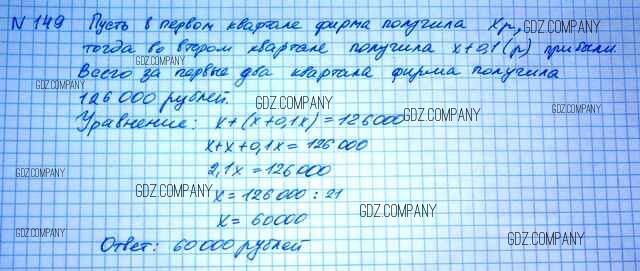 N 149 Пусть в первом квартале фирма получила x р,
тогда во втором квартале получила x+0,1(р) прибыли.
Всего за первые два квартала фирма получила
126 000 рублей.
Уравнение: x+(x+0,1x)=126000
x+x+0,1x=126 000
2,1x=126000
x=126000:21
x=60000
Ответ: 60000 рублей
GDZ.COMPANY
GDZ.COMPANY
GDZ.COMPANY
GDZ.COMPANY
GDZ.COMPANY
GDZ.COMPANY
GDZ.COMPANY
GDZ.COMPANY
GDZ.COMPANY
GDZ.COMPANY
GDZ.COMPANY
GDZ.COMPANY